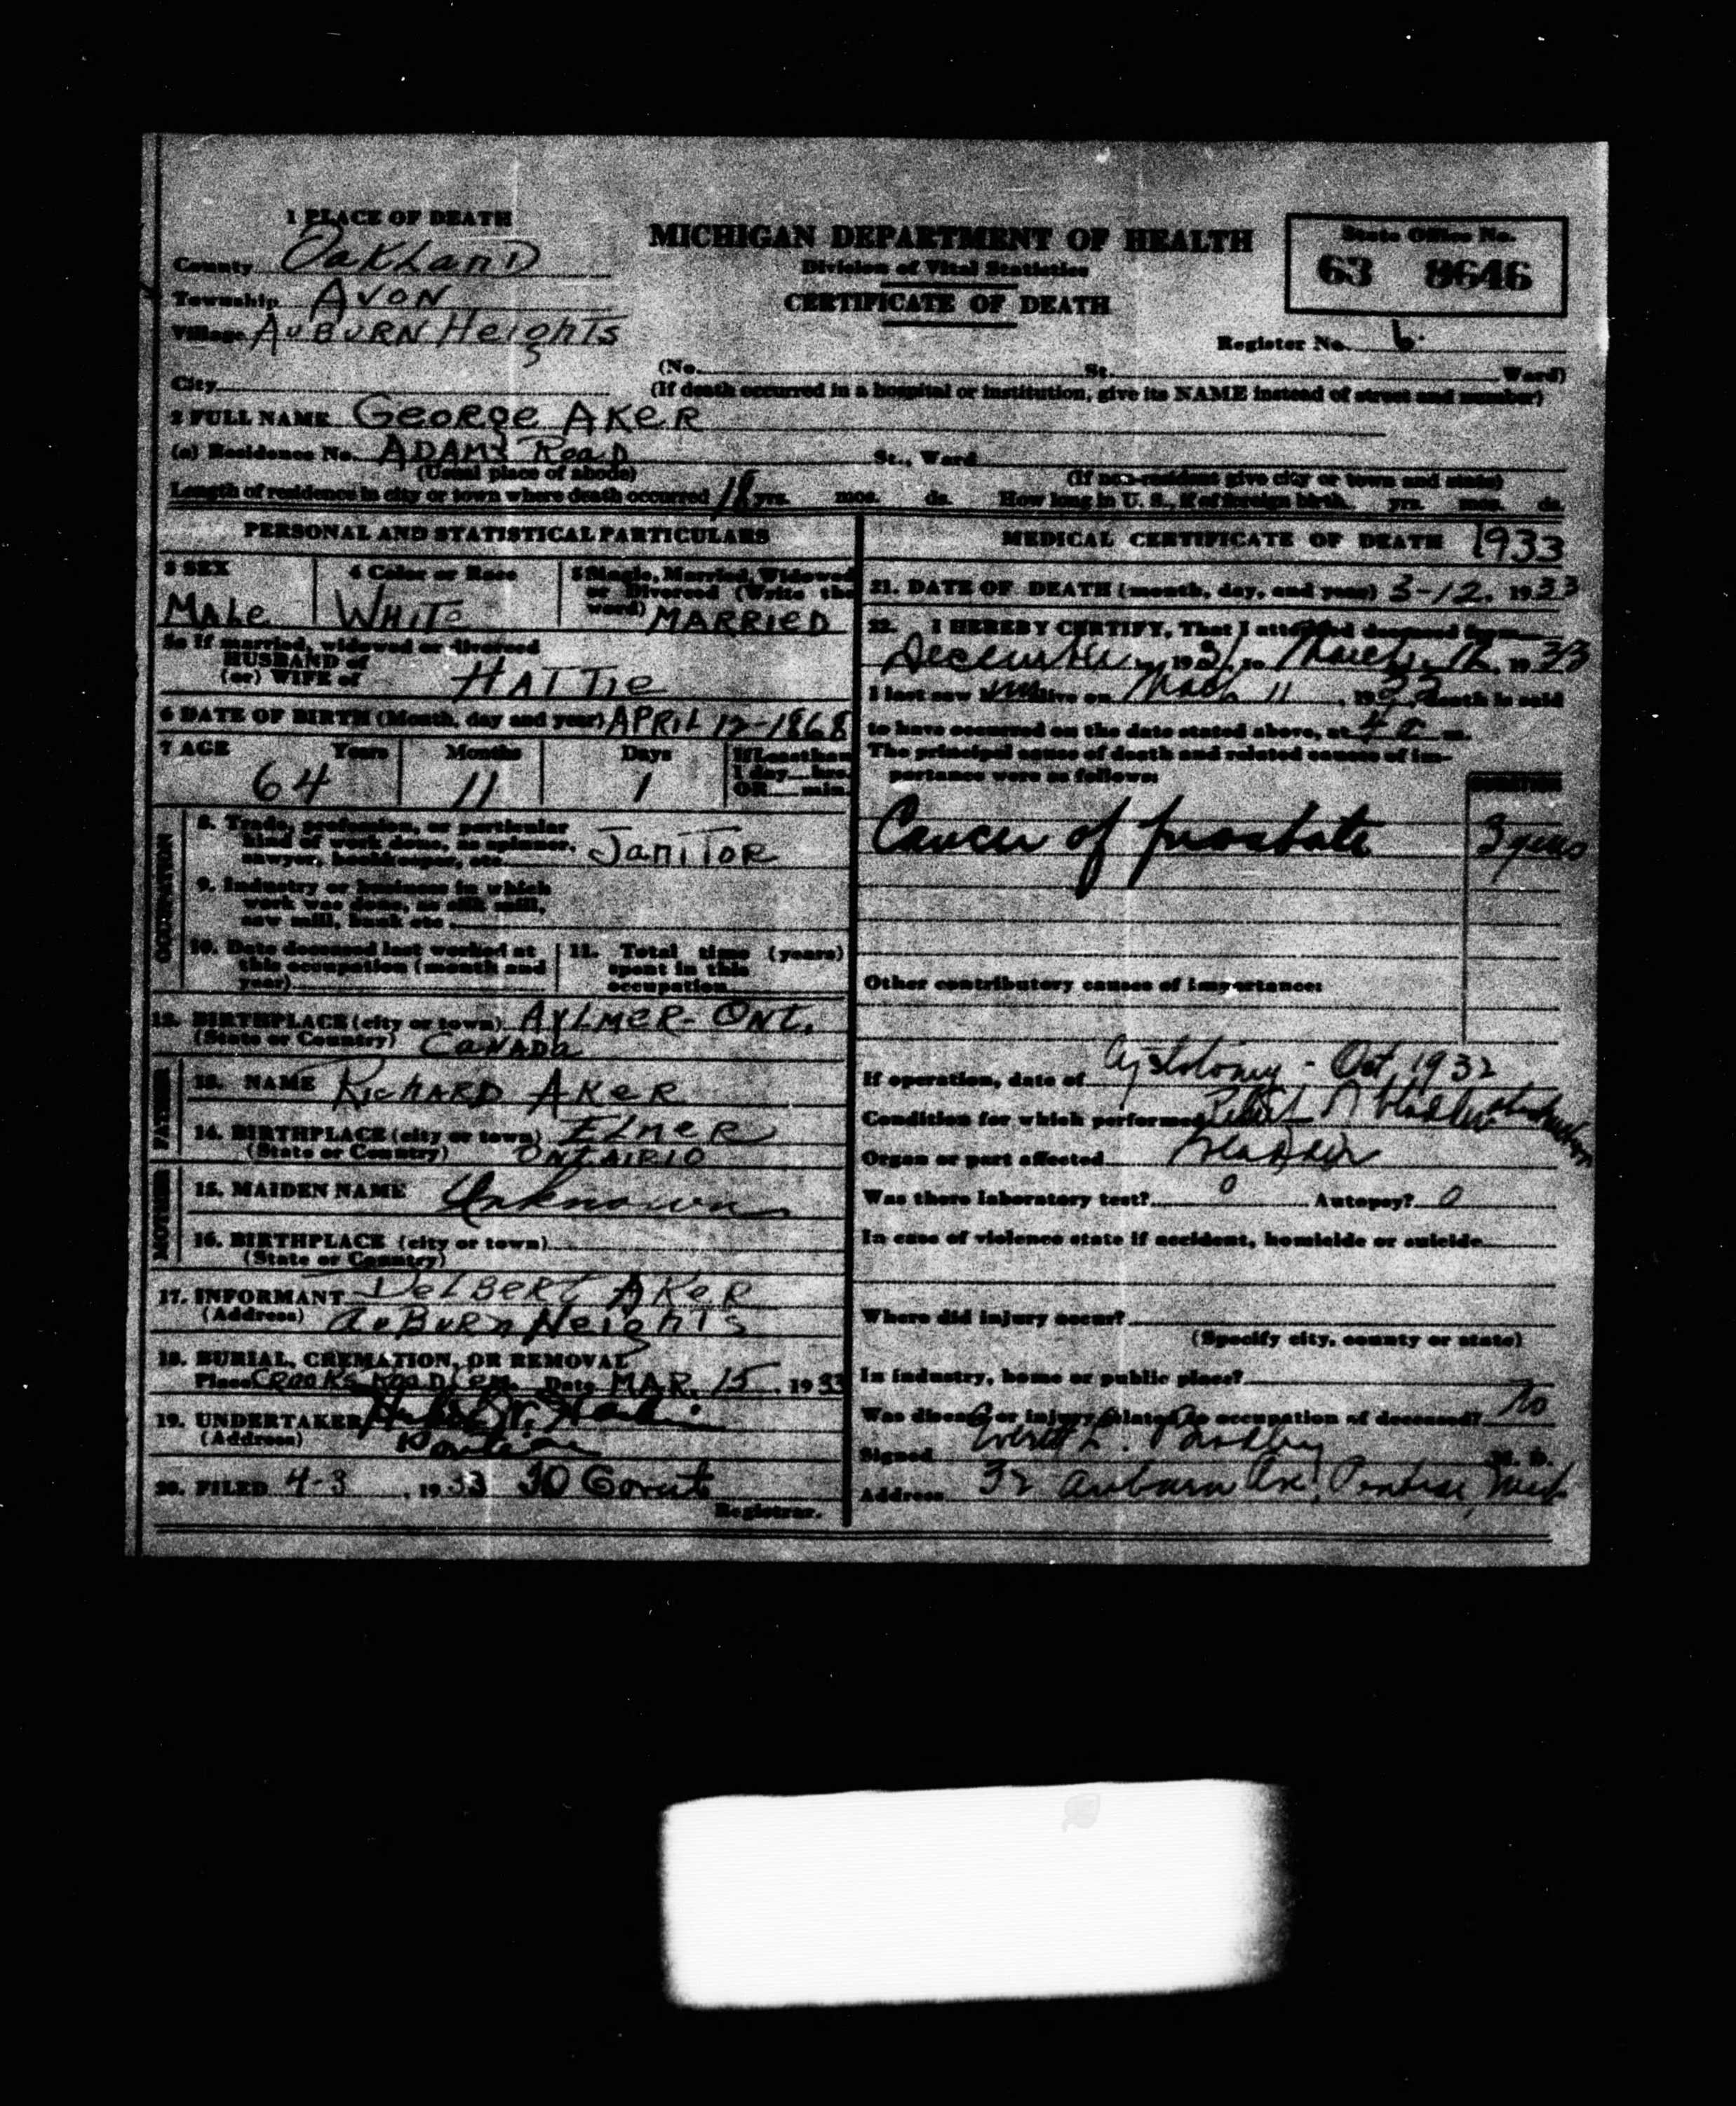 1 PLACE OF DEATH
County Oakland
Township Avon
Village Auburn Heights
City
MICHIGAN DEPARTMENT OF HEALTH
Division of Vital Statistics
CERTIFICATE OF DEATH
State Office No.
63 8646
Register No. 6
(No. St. Ward)
(If death occurred in a hospital or institution, give its NAME instead of street and number)
2 FULL NAME George Aker
(a) Residence No. Adams Road St., Ward
(Usual place of abode) (If non-resident give city or town and state)
Length of residence in city or town where death occurred 18 yrs. mos. ds. How long in U. S., if of foreign birth. yrs. mos. ds.
PERSONAL AND STATISTICAL PARTICULARS
3 SEX
Male
4 Color or Race
White
5 Single, Married, Widowed
or Divorced (Write the
word) Married
5a If married, widowed or divorced
HUSBAND of
(or) WIFE of Hattie
6 DATE OF BIRTH (Month, day and year) April 12-1868
7 AGE Years Months Days If less than
1 day hrs.
OR min.
64 11 1
OCCUPATION
8. Trade, profession, or particular
kind of work done, as spinner,
sawyer, bookkeeper, etc. Janitor
9. Industry or business in which
work was done, as silk mill,
saw mill, bank etc
10. Date deceased last worked at
this occupation (month and
year)
11. Total time (years)
spent in this
occupation
12. BIRTHPLACE (city or town) Aylmer-Ont.
(State or Country) Canada
FATHER
13. NAME Richard Aker
14. BIRTHPLACE (city or town) Elmer
(State or Country) Ontairio
MOTHER
15. MAIDEN NAME Unknown
16. BIRTHPLACE (city or town)
(State or Country)
17. INFORMANT Delbert Aker
(Address) Auburn Heights
18. BURIAL, CREMATION, OR REMOVAL
Place Crooks Road Cem. Date Mar. 15, 1933
19. UNDERTAKER
(Address) Pontiac
20. FILED 4-3, 1933
Registrar.
MEDICAL CERTIFICATE OF DEATH 1933
21. DATE OF DEATH (month, day, and year) 3-12. 1933
22. I HEREBY CERTIFY, That I attended deceased from
December, 1931, to March 12, 1933
I last saw him alive on March 11, 1933, death is said
to have occurred on the date stated above, at 4 a m.
The principal cause of death and related causes of im-
portance were as follows:
DURATION
Cancer of prostate 3 years
Other contributory causes of importance:
If operation, date of Cystotomy - Oct, 1932
Condition for which performed
Organ or part affected Bladder
Was there laboratory test? 0 Autopsy? 0
In case of violence state if accident, homicide or suicide
Where did injury occur?
(Specify city, county or state)
In industry, home or public place?
Was disease or injury related to occupation of deceased? No
Signed M. D.
Address 32 Auburn Ave, Pontiac, Mich